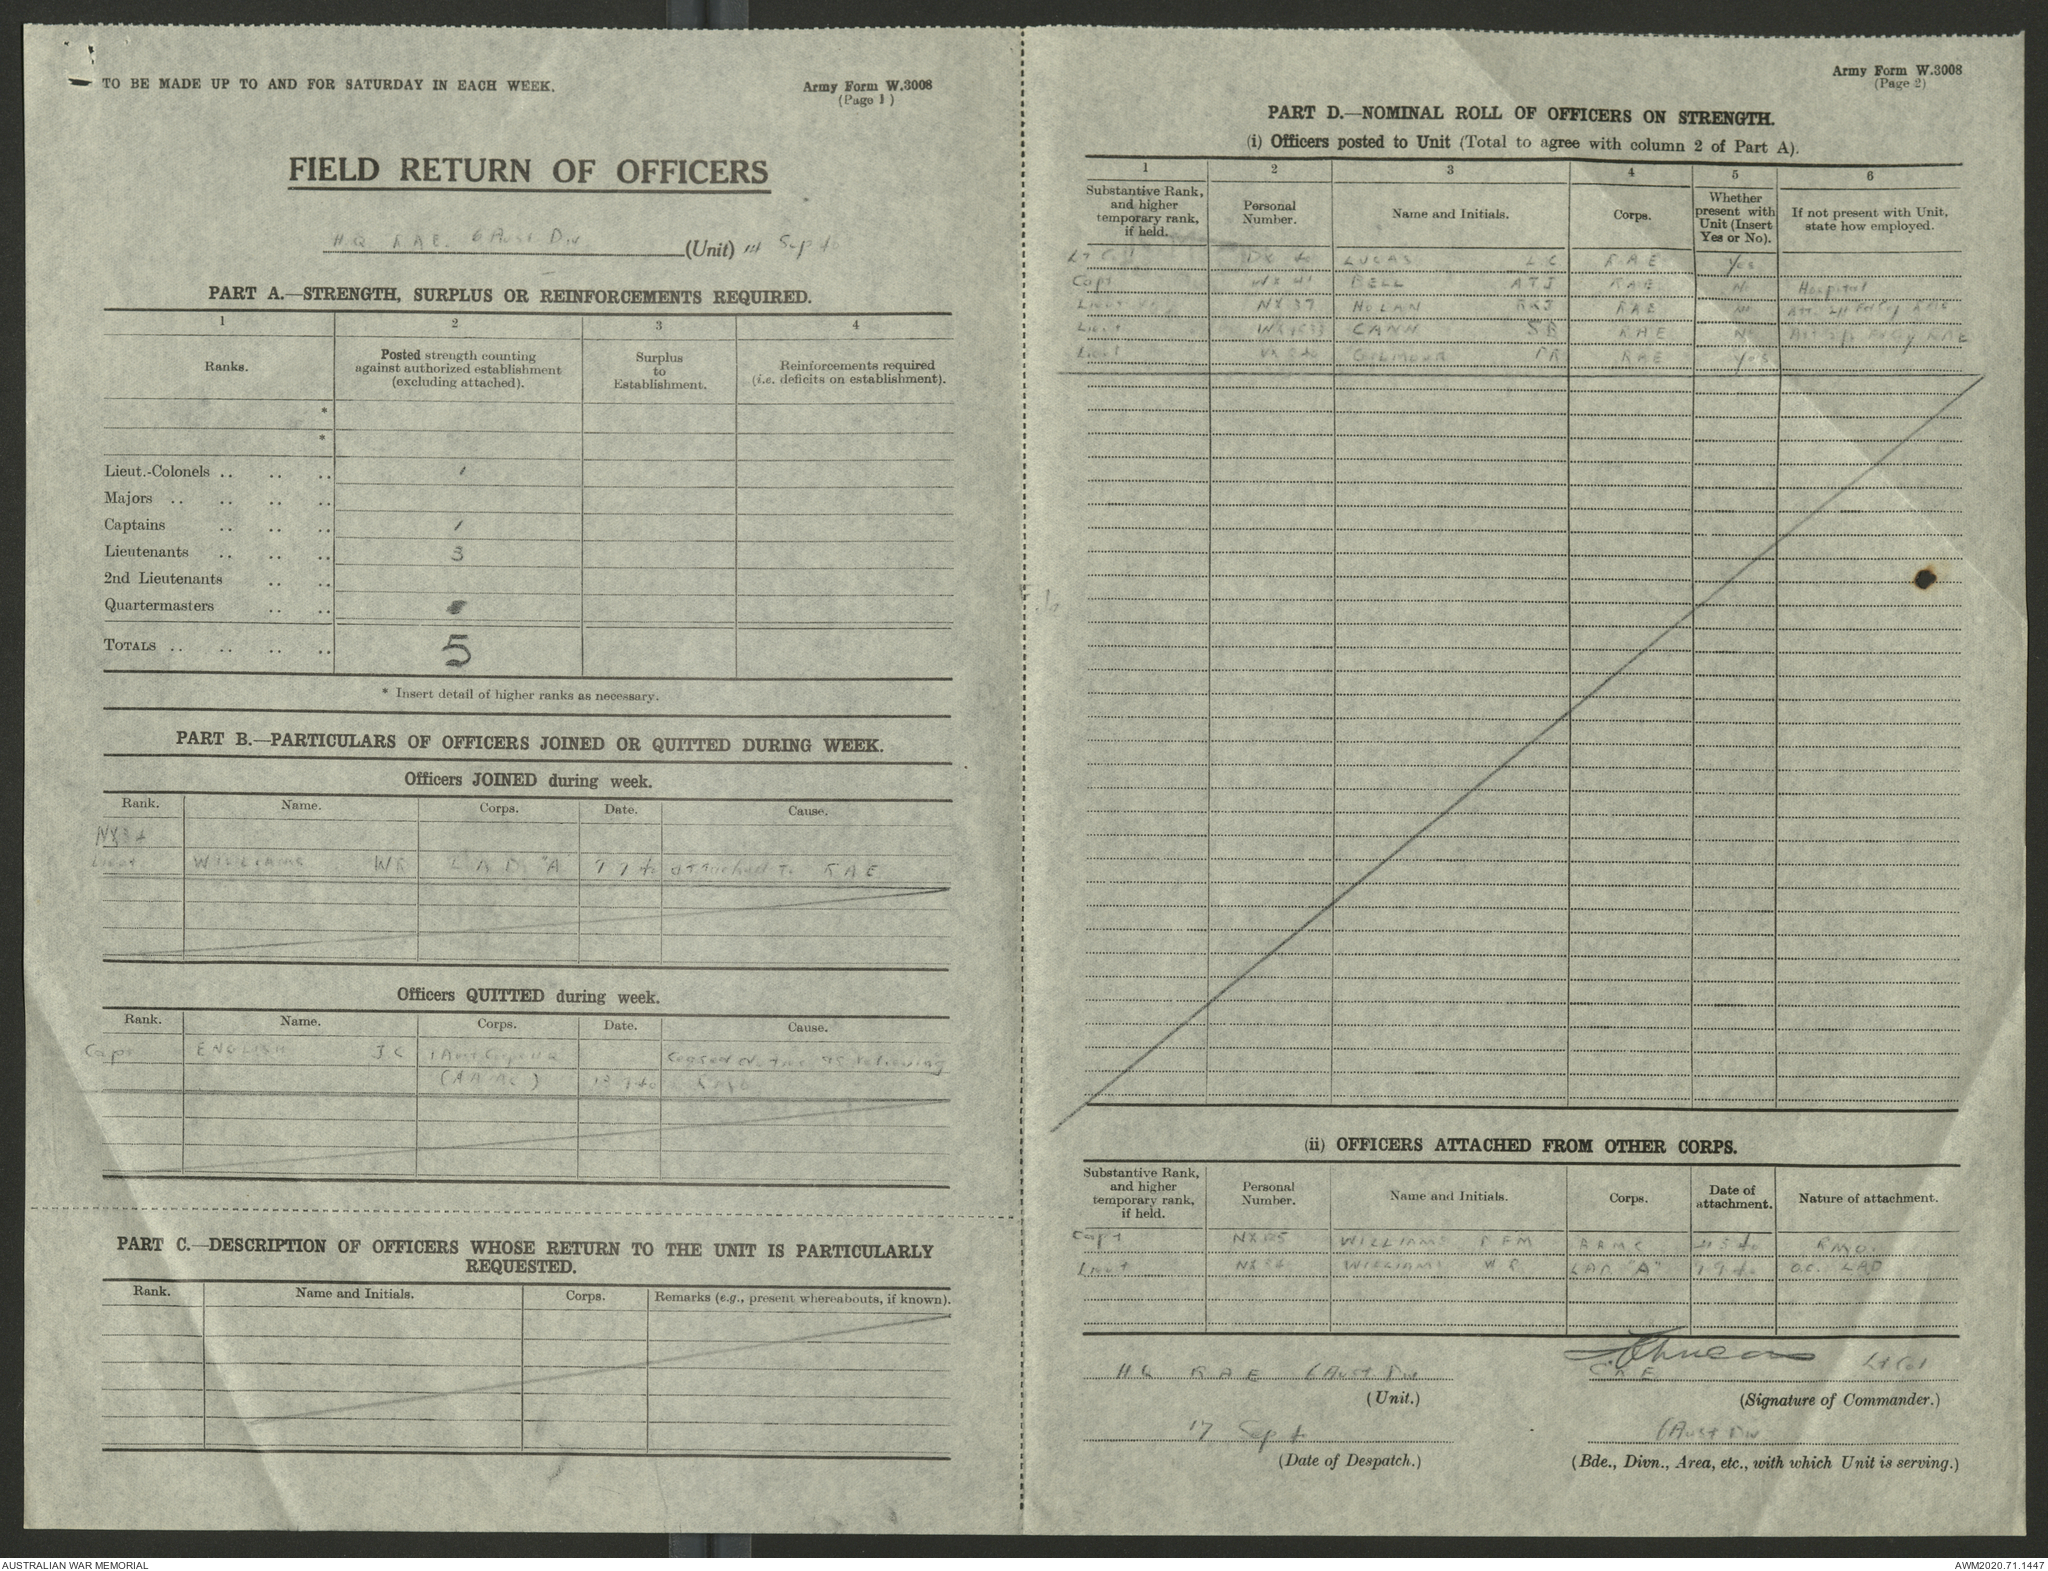 TO BE MADE UP TO AND FOR SATURDAY IN EACH WEEK.
Army Form W.3008
(Page 1)
FIELD RETURN OF OFFICERS
HQ RAE 6 Aust Div (Unit) 14 Sep 40
PART A.—STRENGTH, SURPLUS OR REINFORCEMENTS REQUIRED.
1 2 3 4
Ranks. Posted strength counting against authorized establishment (excluding attached). Surplus to Establishment. Reinforcements required (i.e. deficits on establishment).
*
*
Lieut.-Colonels .. .. .. 1
Majors .. .. .. ..
Captains .. .. .. 1
Lieutenants .. .. .. 3
2nd Lieutenants .. ..
Quartermasters .. ..
TOTALS .. .. .. .. 5
* Insert detail of higher ranks as necessary.
PART B.—PARTICULARS OF OFFICERS JOINED OR QUITTED DURING WEEK.
Officers JOINED during week.
Rank. Name. Corps. Date. Cause.
NX34
Lieut WILLIAMS WR LAD "A" 7 9 40 attached to RAE
Officers QUITTED during week.
Rank. Name. Corps. Date. Cause.
Capt ENGLISH JC 1 Aust Corps ceased duties as relieving
(AAMC) 13 9 40 RMO
PART C.—DESCRIPTION OF OFFICERS WHOSE RETURN TO THE UNIT IS PARTICULARLY REQUESTED.
Rank. Name and Initials. Corps. Remarks (e.g., present whereabouts, if known).
Army Form W.3008
(Page 2)
PART D.—NOMINAL ROLL OF OFFICERS ON STRENGTH.
(i) Officers posted to Unit (Total to agree with column 2 of Part A).
1 2 3 4 5 6
Substantive Rank, and higher temporary rank, if held. Personal Number. Name and Initials. Corps. Whether present with Unit (Insert Yes or No). If not present with Unit, state how employed.
Lt Col DX LUCAS LC RAE Yes
Capt WX 41 BELL ATJ RAE No Hospital
Lieut NX 37 NOLAN RAE No Att 2/1 Fd Coy RAE
Lieut CANN SB RAE No Att 2/2 Fd Coy RAE
Lieut VX GILMOUR RAE Yes
(ii) OFFICERS ATTACHED FROM OTHER CORPS.
Substantive Rank, and higher temporary rank, if held. Personal Number. Name and Initials. Corps. Date of attachment. Nature of attachment.
Capt WILLIAMS RFM AAMC RMO.
Lieut NX34 WILLIAMS WR LAD "A" 7 9 40 O.C. LAD
HQ RAE 6 Aust Div
(Unit.)
Lt Col
CRE
(Signature of Commander.)
17 Sep 40
(Date of Despatch.)
6 Aust Div
(Bde., Divn., Area, etc., with which Unit is serving.)
AUSTRALIAN WAR MEMORIAL
AWM2020.71.1447